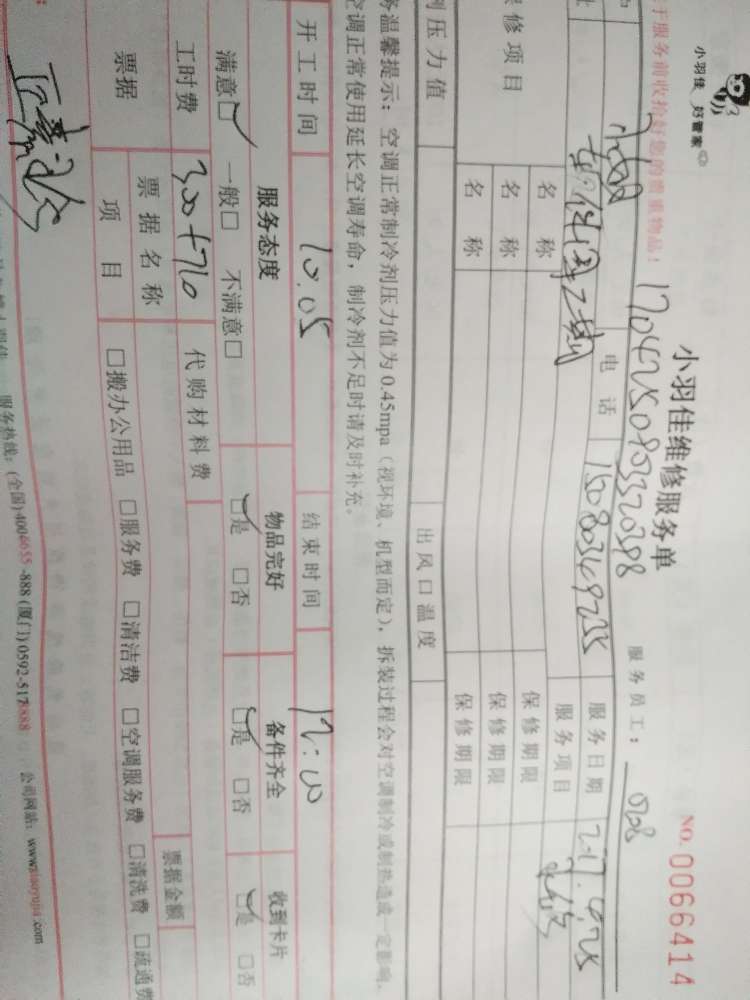 小羽佳 好管家
小羽佳维修服务单
NO. 0066414
于服务前收拾好您的贵重物品!
1704250803320398
服务员工:
电话 15080349235 服务日期
保修项目 服务项目
名称 保修期限
名称 保修期限
名称 保修期限
剂压力值 出风口温度
务温馨提示:空调正常制冷剂压力值为0.45mpa(视环境、机型而定),拆装过程会对空调制冷或制热造成一定影响,
空调正常使用延长空调寿命,制冷剂不足时请及时补充。
开工时间 10:05 结束时间 12:00
服务态度 物品完好 备件齐全 收到卡片
满意☑ 一般□ 不满意□ ☑是 □否 ☑是 □否 ☑是 □否
工时费 300+710 代购材料费 票据金额
票据 票据名称 项目 □搬办公用品 □服务费 □清洁费 □空调服务费 □清洗费 □疏通费
服务热线:(全国)4006655-888 (厦门)0592-5178888 公司网站:www.xiaoyujia.com